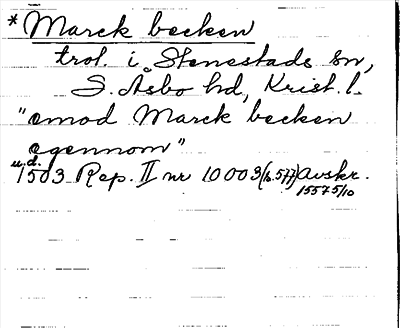 * Marck becken
trol. i Stenestads sn,
S. Åsbo hd, Krist. l.
"emod Marck becken
egennom"
u.d.
1503 Rep. II nr 10003 (s. 577) Avskr.
1557 5/10